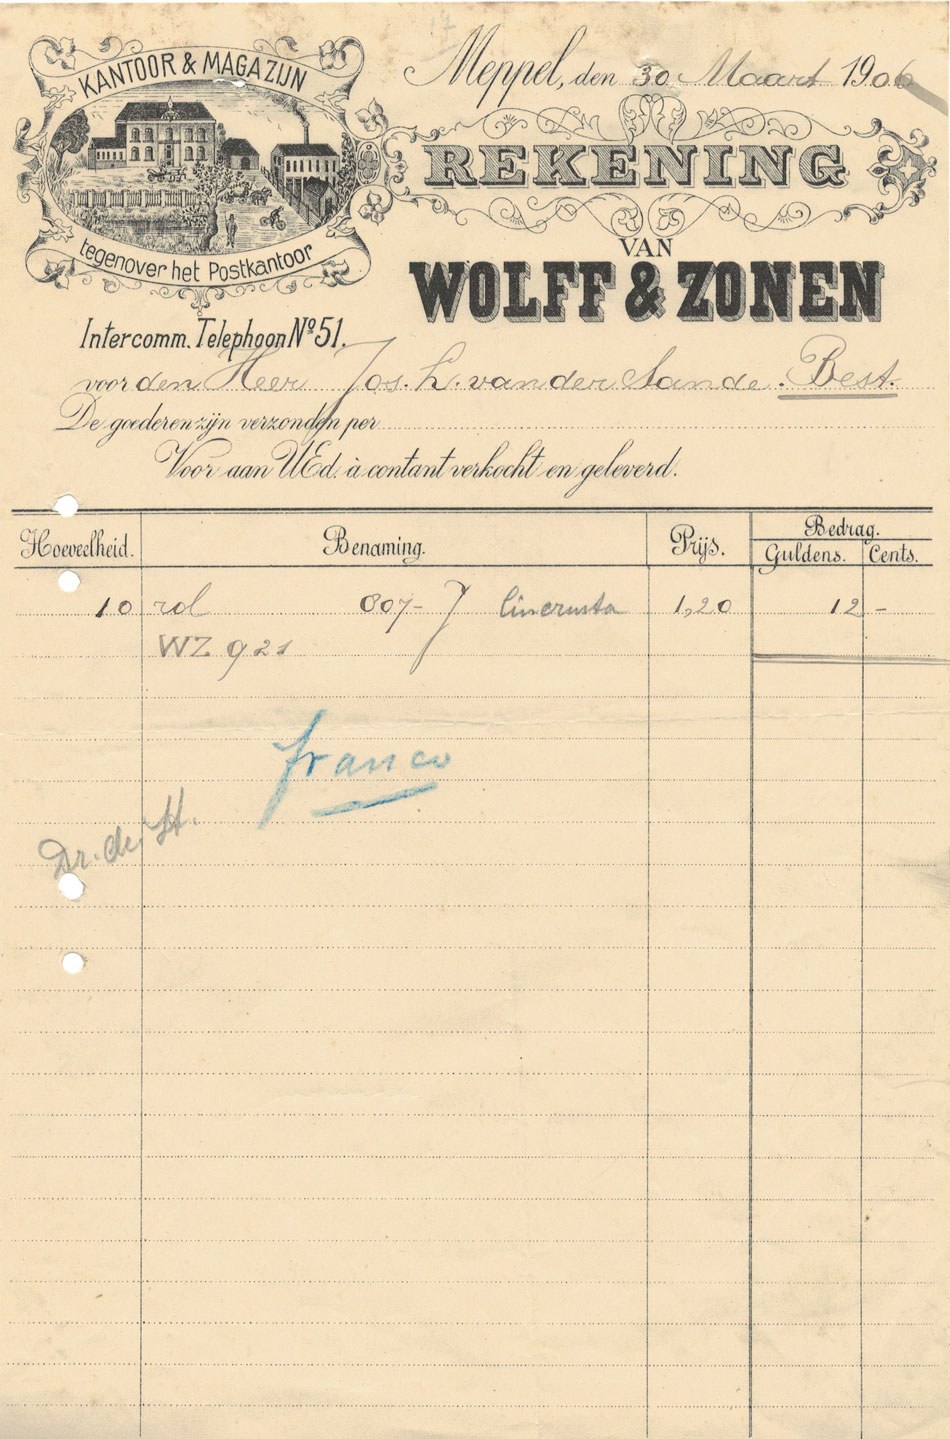 KANTOOR & MAGAZIJN
tegenover het Postkantoor
Intercomm. Telephoon No 51.
Meppel, den 30 Maart 1906
REKENING
VAN
WOLFF & ZONEN
voor den Heer Jos. L. van der Sande. Best.
De goederen zijn verzonden per
Voor aan UEd. à contant verkocht en geleverd.
Hoeveelheid. Benaming. Prijs. Bedrag.
Guldens. Cents.
10 rol 807- J lincrusta 1,20 12 -
WZ 921
franco